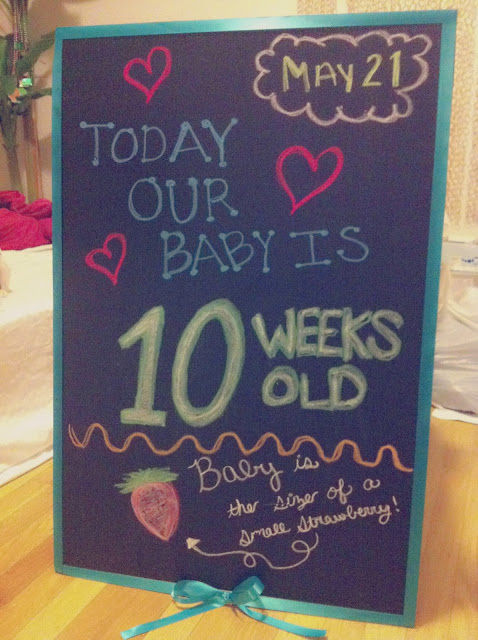 MAY 21
TODAY
OUR
BABY IS
10 WEEKS
OLD
Baby is
the size of a
small strawberry!